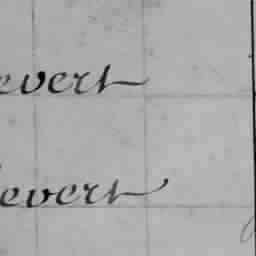 evert
evert